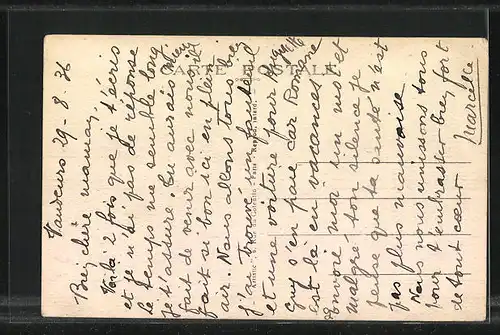 Vaudeurs 29-8.36
Bien chère maman,
Voilà 2 fois que je t'écris
et je n'ai pas de réponse
le temps me semble long
je t'assure. Tu aurais bien
fait de venir avec nous, il
fait si bon ici en plein
air. Nous allons tous bien
j'ai trouvé un fauteuil
et une voiture pour
Guy s'en paie car Romane
est là en vacances
Envoie moi un mot et
malgré ton silence je
pense que ta santé n'est
pas plus mauvaise.
Nous nous unissons tous
pour t'embrasser bien fort
de tout cœur
Marcelle
CARTE POSTALE